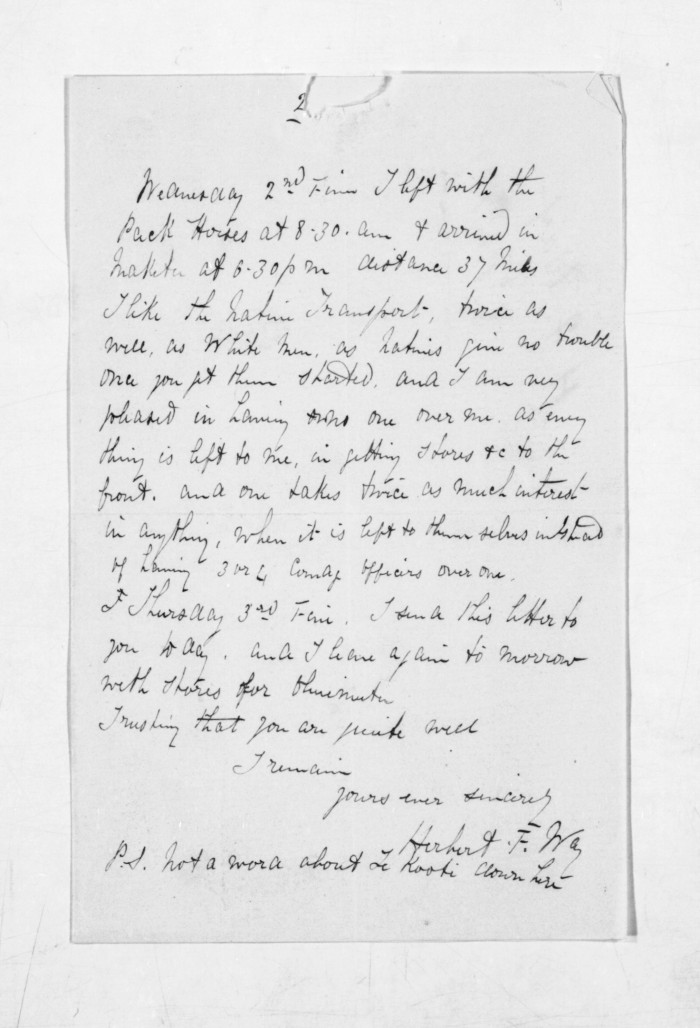 2
Wednesday 2nd Fine I left with the
Pack Horses at 8-30. am & arrived in
Maketu at 6-30 pm distance 37 Miles
I like the Native Transport, twice as
well, as White Men, as natives give no trouble
once you get them started. and I am very
pleased in having no one over me. as every
thing is left to me, in getting stores &c to the
front. and one takes twice as much interest
in anything, when it is left to them selves instead
of having 3 or 4 Comdg Officers over one.
Thursday 3rd Fine. I send this letter to
you to day. and I leave again to morrow
with stores for
Trusting that you are quite well
I remain
yours ever sincerely
Herbert F. Way
P.S. Not a word about Te Kooti down here